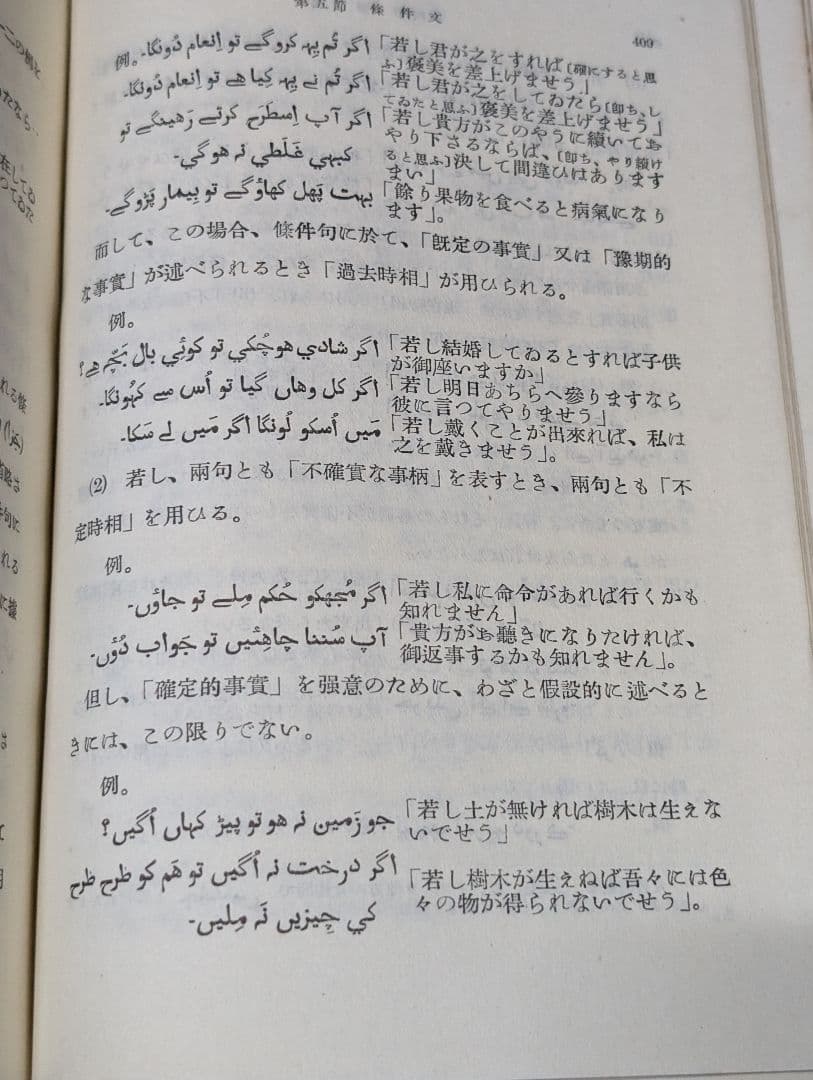 第五節　條件文
409
例。 اگر تُم یِہ کروگے تو اِنعام دُونگا۔ 「若し君が之をすれば〔確にすると思
ふ〕褒美を差上げませう」
اگر تُم نے یِہ کِیا ھے تو اِنعام دُونگا۔ 「若し君が之をしてゐたら〔卽ち、し
てゐたと思ふ〕褒美を差上げませう」
اگر آپ اِسطَرَح کرتے رَھینگے تو 「若し貴方がこのやうに續いてお
やり下さるならば、〔卽ち、やり續け
کبھی غَلَطی نہ ھوگی۔ ると思ふ〕決して間違ひはあります
まい」
بہت پَھل کھاؤگے تو بِیمار پَڑوگے۔ 「餘り果物を食べると病氣になり
ます」。
而して、この場合、條件句に於て、「旣定の事實」又は「豫期的
な事實」が述べられるとき「過去時相」が用ひられる。
例。
اگر شادي ھوچُکي تو کوئي بال بَچّہ ھے؟ 「若し結婚してゐるとすれば子供
が御座いますか」
اگر کل وھاں گیا تو اُس سے کہُونگا۔ 「若し明日あちらへ參りますなら
彼に言つてやりませう」
مَیں اُسکو لُونگا اگر مَیں لے سَکا۔ 「若し戴くことが出來れば、私は
之を戴きませう」。
(2)　若し、兩句とも「不確實な事柄」を表すとき、兩句とも「不
定時相」を用ひる。
例。
اگر مُجھکو حُکم مِلے تو جاؤں۔ 「若し私に命令があれば行くかも
知れません」
آپ سُننا چاھِئیں تو جَواب دُوں۔ 「貴方がお聽きになりたければ、
御返事するかも知れません」。
但し、「確定的事實」を强意のために、わざと假設的に述べると
きには、この限りでない。
例。
جو زَمین نہ ھو تو پیڑ کہاں اُگیں؟ 「若し土が無ければ樹木は生えな
いでせう」
اگر درخت نہ اُگیں تو ھَم کو طرح طرح 「若し樹木が生えねば吾々には色
کي چِیزیں نَہ مِلیں۔ 々の物が得られないでせう」。